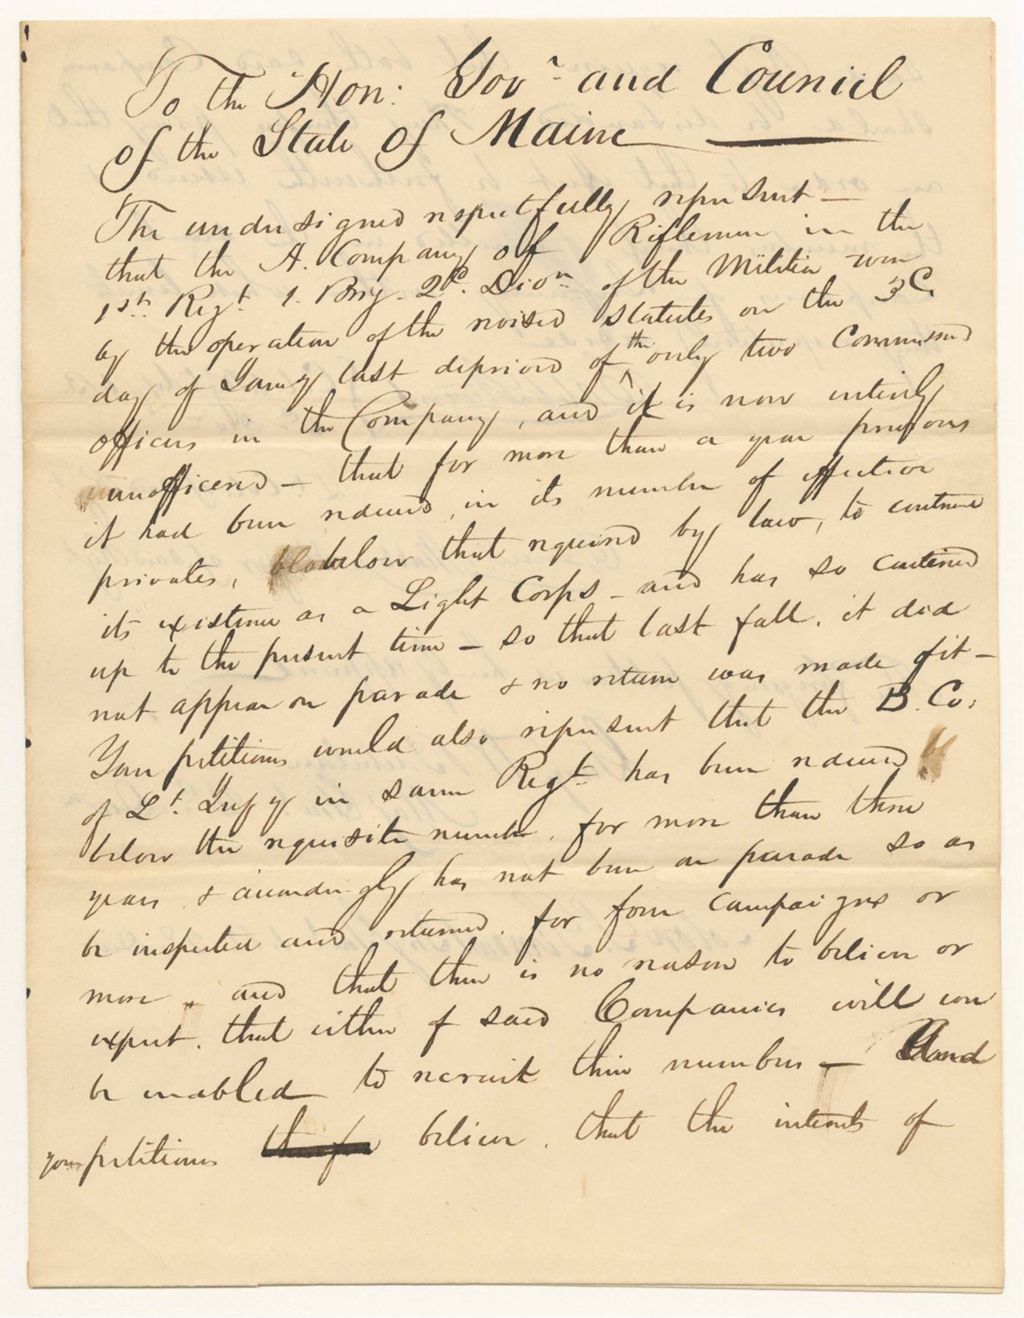 To the Hon: Govr and Council
of the State of Maine
The undersigned respectfully represent —
that the A. Company of Riflemen in the
1st. Regt. 1. Brig. 2d. Divon of the Militia were
by the operation of the revised Statutes on the 3d.
day of Jany last deprived of the only two Commissned
officers in the Company, and it is now entirely
unofficered — that for more than a year previous
it had been reduced, in its number of effective
privates, below that required by law, to continue
its existence as a Light Corps — and has so continued
up to the present time — so that last fall, it did
not appear on parade & no return was made of it —
Your petitioners would also represent that the B. Co:
of Lt. Infy in same Regt. has been reduced
below the requisite number, for more than three
years & accordingly has not been on parade so as
be inspected and returned, for four campaigns or
more, and that there is no reason to believe or
expect, that either of said Companies will ever
be enabled to recruit their numbers — And
your petitioners believe, that the interests of